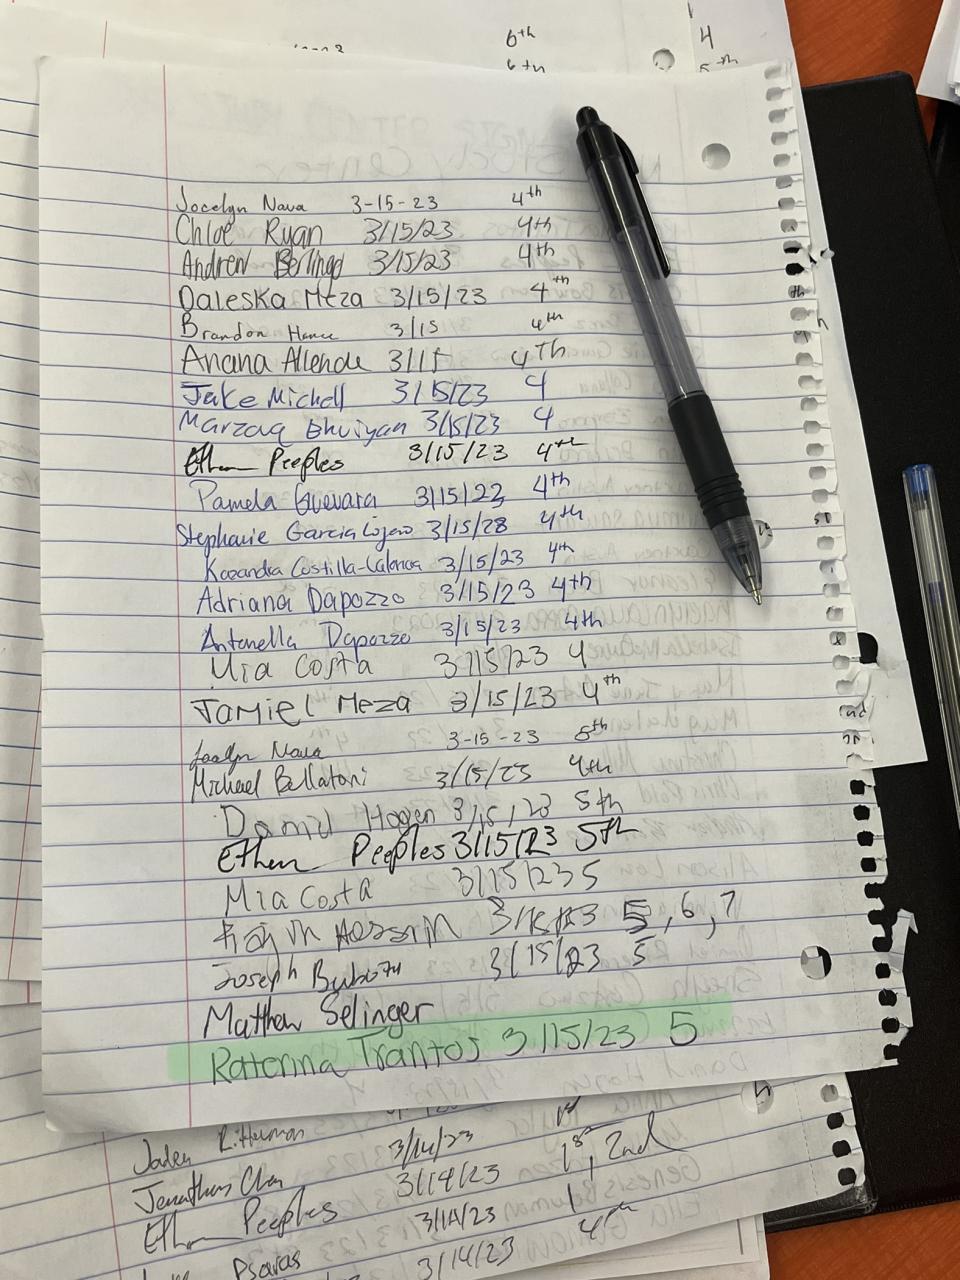 6th 4
5th
Jocelyn Nava 3-15-23 4th
Chloe Ryan 3/15/23 4th
Andrew Berlingo 3/15/23 4th
Daleska Meza 3/15/23 4th
Brandon 3/15 4th
Ariana Allende 3/15 4th
Jake Michell 3/15/23 4
Marzaq Bhuiyan 3/15/23 4
Ethan Peeples 3/15/23 4th
Pamela Guevara 3/15/23 4th
Stephanie Garcia Lojero 3/15/28 4th
Kazandra Costilla- 3/15/23 4th
Adriana Dapozzo 3/15/23 4th
Antonella Dapozzo 3/15/23 4th
Mia Costa 3/15/23 4
Jamiel Meza 3/15/23 4th
Jocelyn Nava 3-15-23 5th
Michael Bellatoni 3/15/23 4th
Daniel Hogen 3/15/23 5th
Ethan Peeples 3/15/23 5th
Mia Costa 3/15/23 5
3/15/23 5, 6, 7
Joseph 3/15/23 5
Matthew Selinger
Trantos 3/15/23 5
Jaden 3/14/23
Jonathan Chan 3/14/23 1st, 2nd
Ethan Peeples 3/14/23 1
Psaras 3/14/23 4th